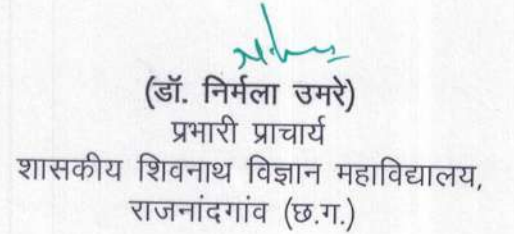 (डॉ. निर्मला उमरे)
प्रभारी प्राचार्य
शासकीय शिवनाथ विज्ञान महाविद्यालय,
राजनांदगांव (छ.ग.)